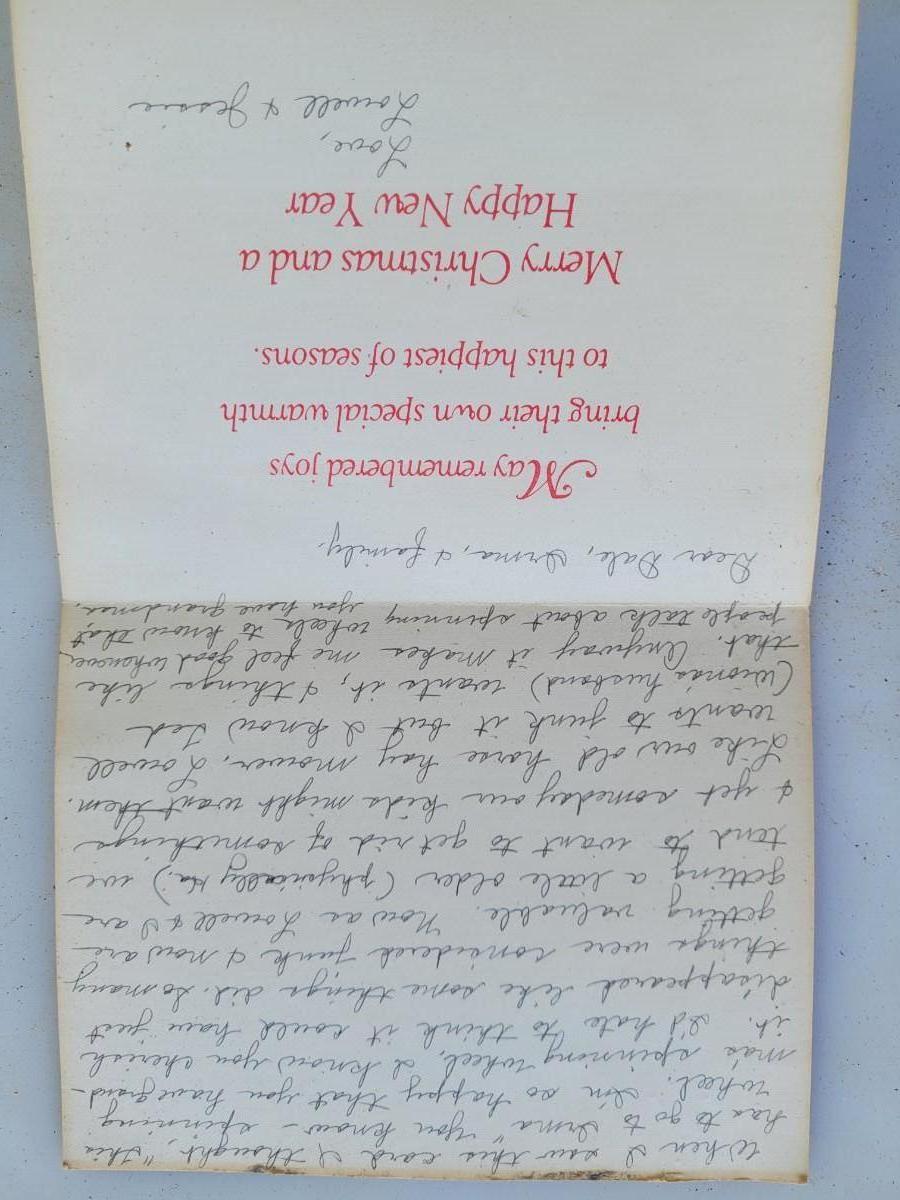 When I saw this card I thought, "this
has to go to Irma" you know – spinning
wheel. I'm so happy that you have grand-
ma's spinning wheel, I know you cherish
it. I'd hate to think it could have just
disappeared like some things did. So many
things were considered junk & now are
getting valuable. Now as Lowell & I are
getting a little older (physically Ha) we
tend to want to get rid of somethings
& yet someday our kids might want them.
Like our old horse hay mower, Lowell
wants to junk it but I know Ted
husband) wants it, & things like
that. Anyway it makes me feel good whenever
people talk about spinning wheels to know that
you have grandmas.
Dear Dale, Irma, & family.
May remembered joys
bring their own special warmth
to this happiest of seasons.
Merry Christmas and a
Happy New Year
Love,
Lowell & Jessie